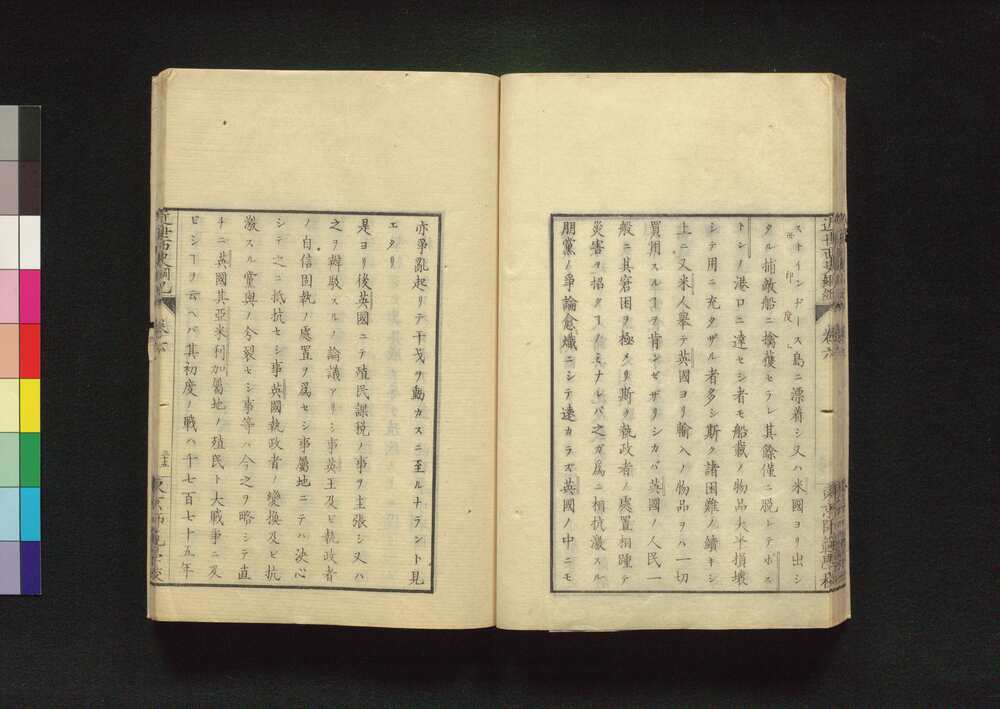 ストインドース島ニ漂着シ又ハ米國ヨリ出シ
西印度
タル捕敵船ニ擒獲セラレ其餘僅ニ脱レテボス
トンノ港口ニ達セシ者モ船載ノ物品大半損壞
シテ用ニ充タザル者多シ斯ク諸困難ノ續キシ
上ニ又米人擧テ英國ヨリ輸入ノ物品ヲハ一切
買用スルヿヲ肯ンゼザリシカバ英國ノ人民一
般ニ其窘困ヲ極メリ斯ク執政者ノ處置相踵テ
災害ヲ招クヿノミナレバ之ガ爲ニ相抗激スル
朋黨ノ爭論愈熾ニシテ遠カラズ英國ノ中ニモ
近世西史綱紀 卷六
東京師範學校
亦爭亂起リテ干戈ヲ動カスニ至ルナラント見
エタリ
是ヨリ後英國ニテ殖民課税ノ事ヲ主張シ又ハ
之ヲ辯駁スルノ論議アリシ事英王及ビ執政者
ノ自信固執ノ處置ヲ爲セシ事屬地ニテハ決心
シテ之ニ抵抗セシ事英國執政者ノ變換及ビ抗
激スル黨與ノ分裂セシ事等ハ今之ヲ略シテ直
チニ英國其亞米利加屬地ノ殖民ト大戰事ニ及
ビシヿヲ云ヘバ其初度ノ戰ハ千七百七十五年
近世西史綱紀 卷六
東京師範學校